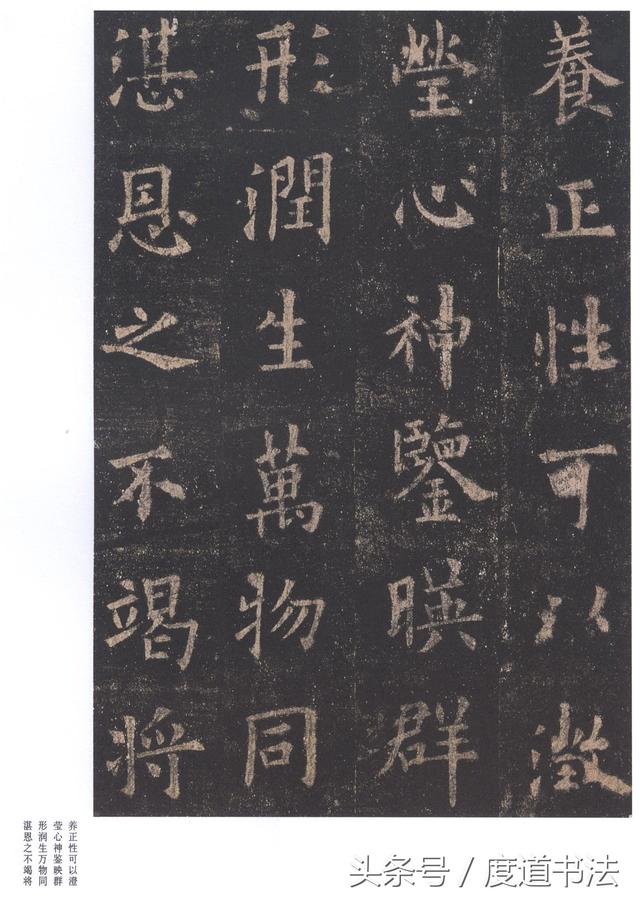 養正性可以澂
瑩心神鑒暎群
形潤生萬物同
湛恩之不竭將
养正性可以澄
莹心神鉴映群
形润生万物同
湛恩之不竭将
头条号 / 度道书法